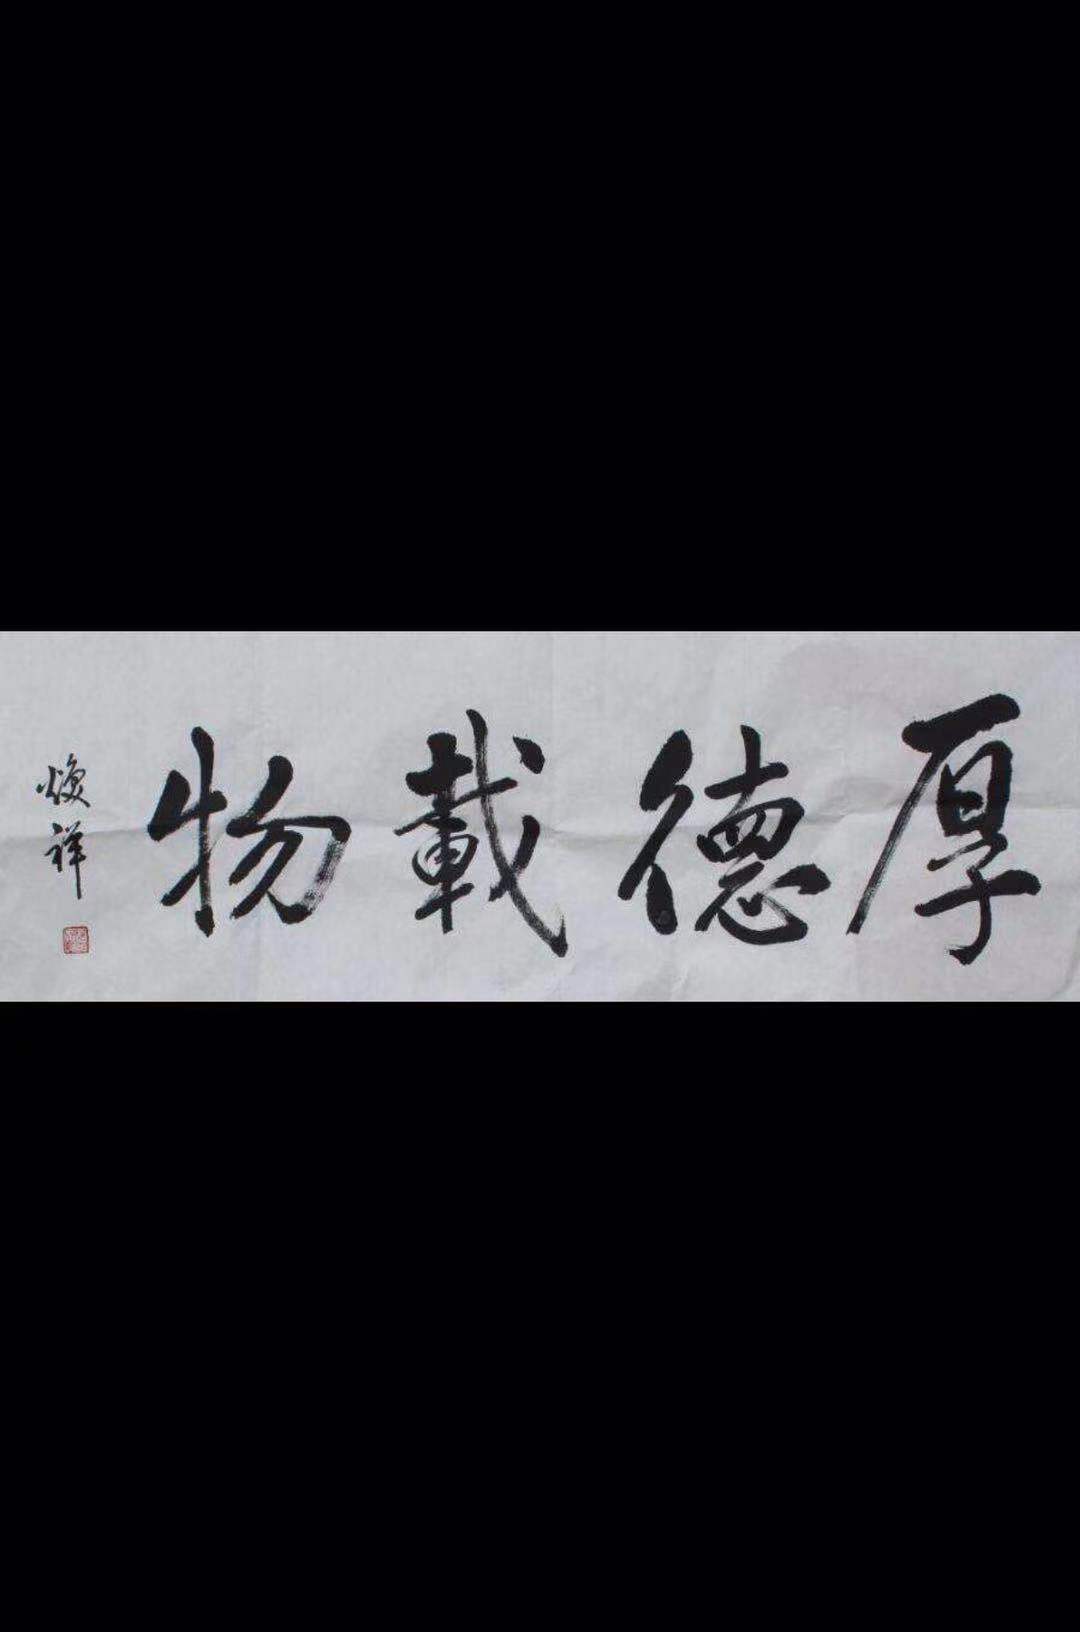 厚德載物
煥祥